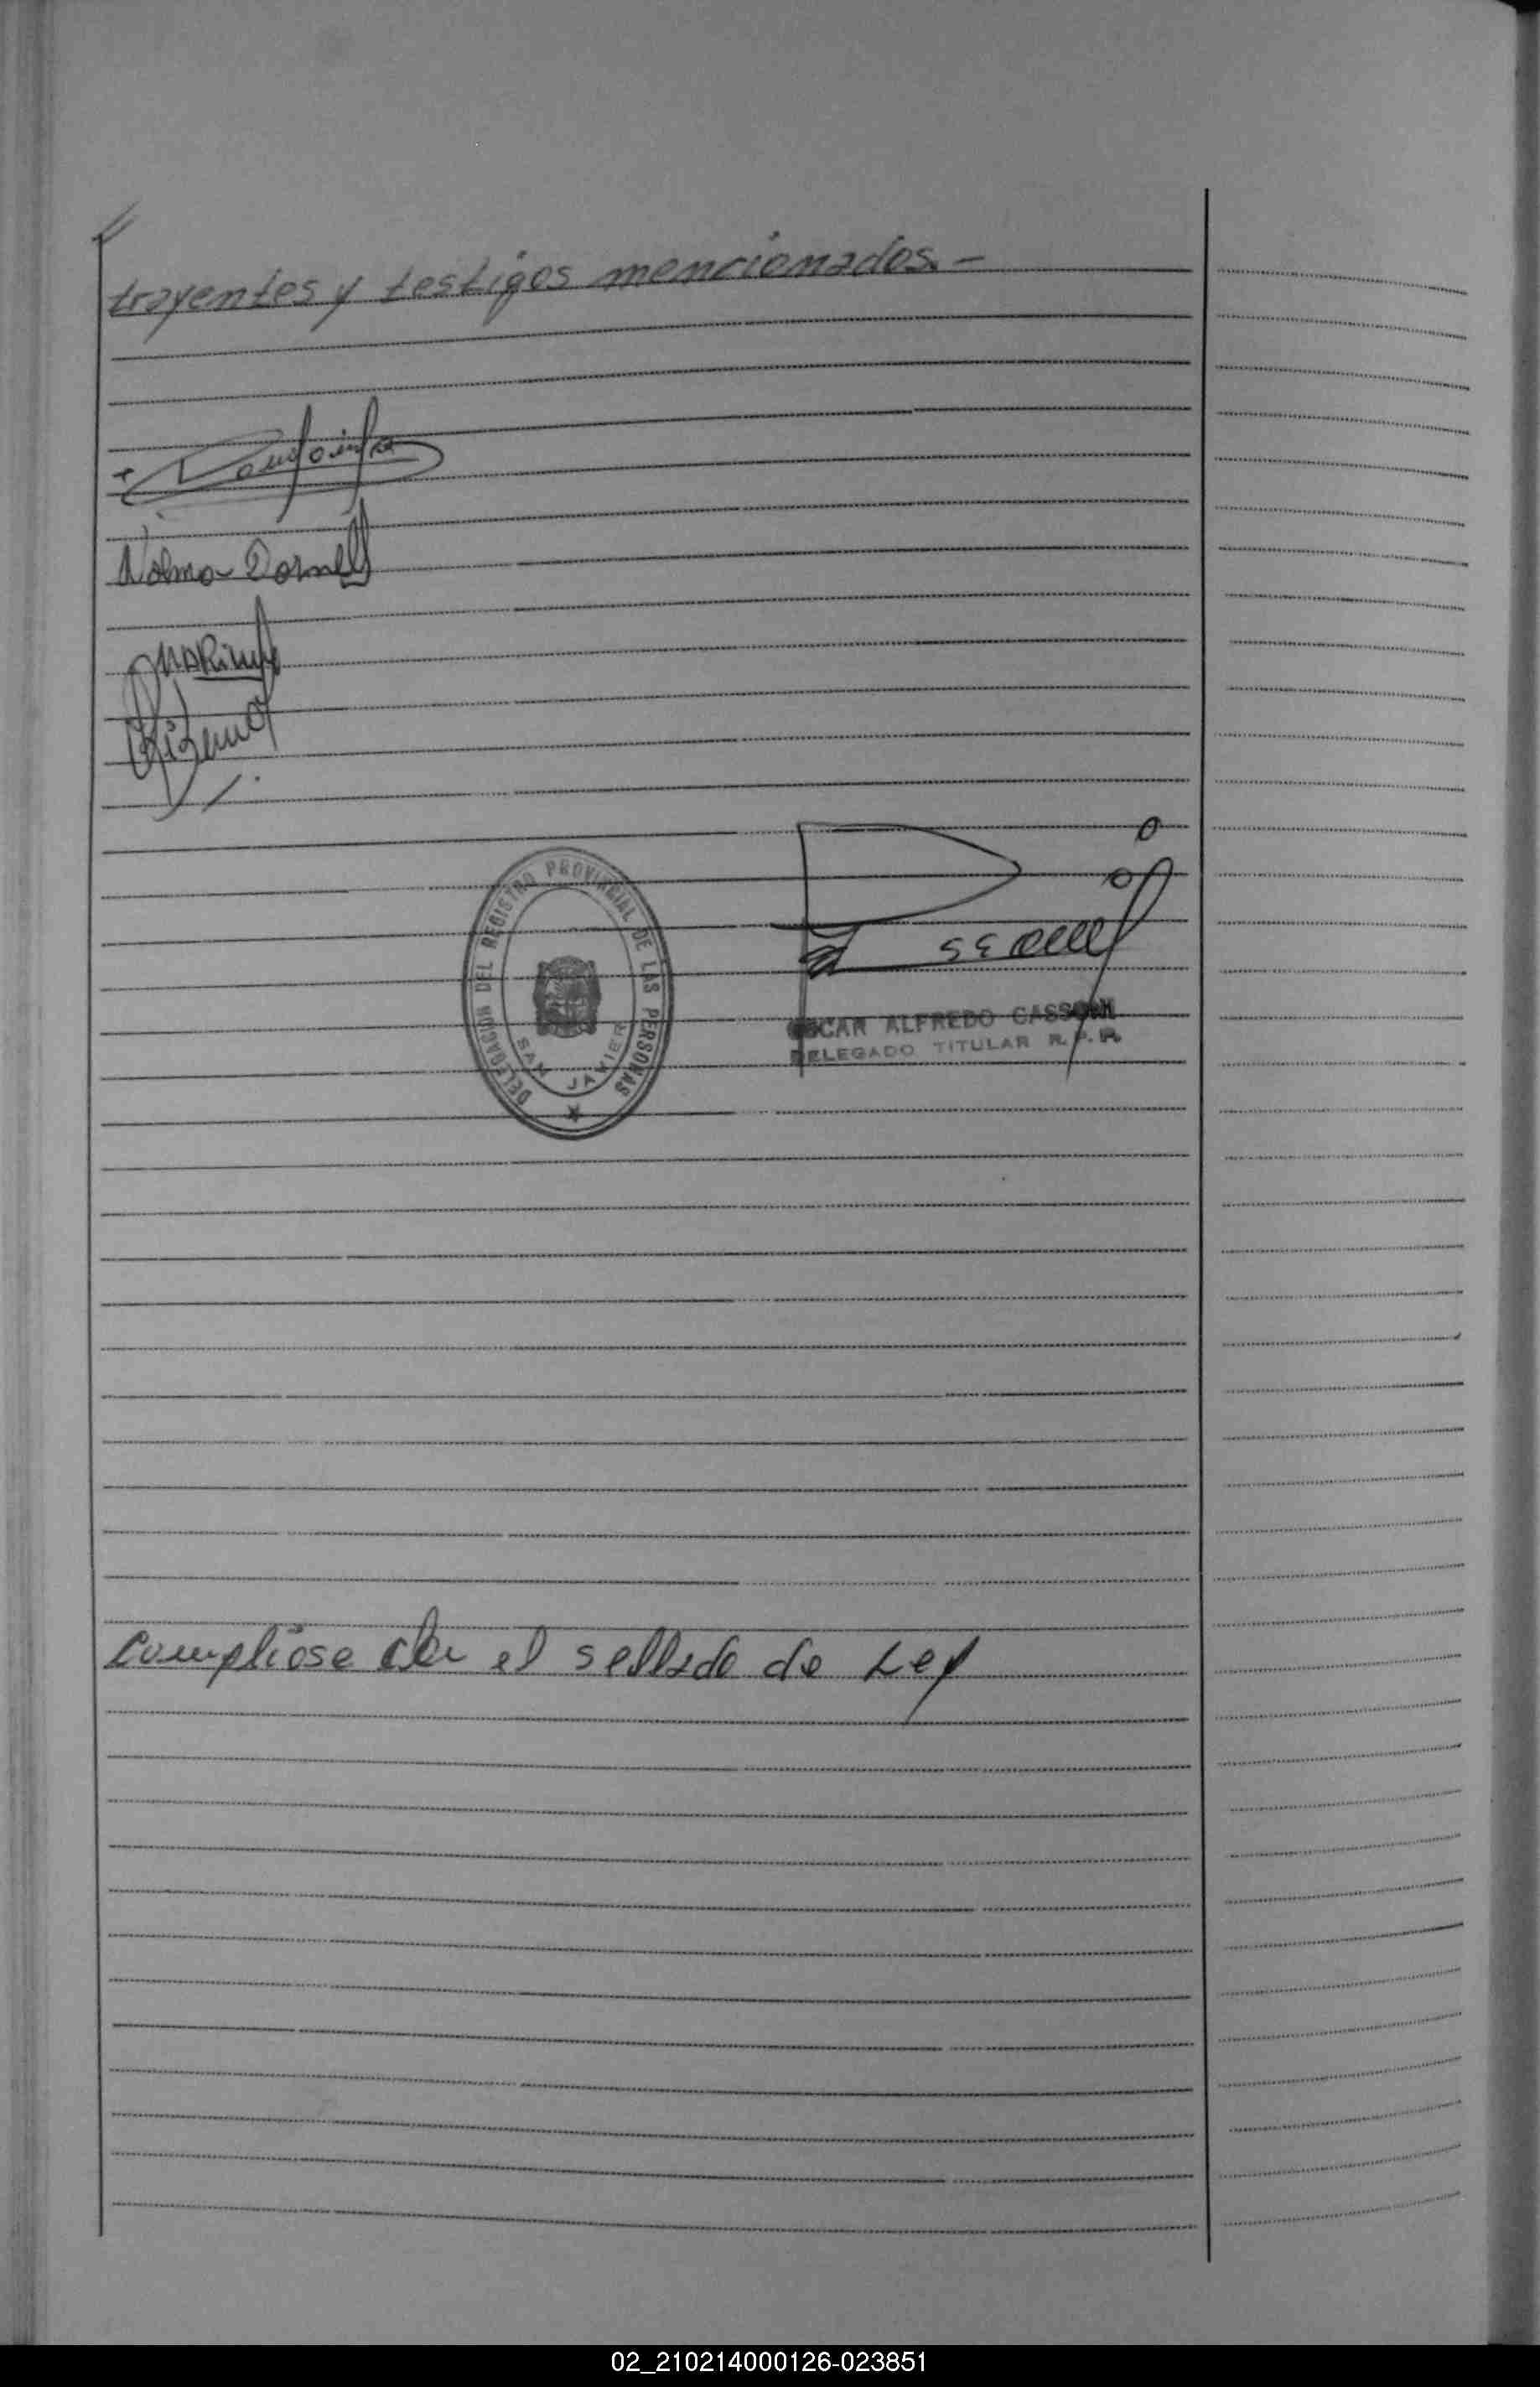 trayentes y testigos mencionados.-
Nolma Dornell
DELEGACION DEL REGISTRO PROVINCIAL DE LAS PERSONAS
SAN JAVIER
OSCAR ALFREDO CASSONI
DELEGADO TITULAR R.P.P.
Compliose con el sellado de Ley
02_210214000126-023851